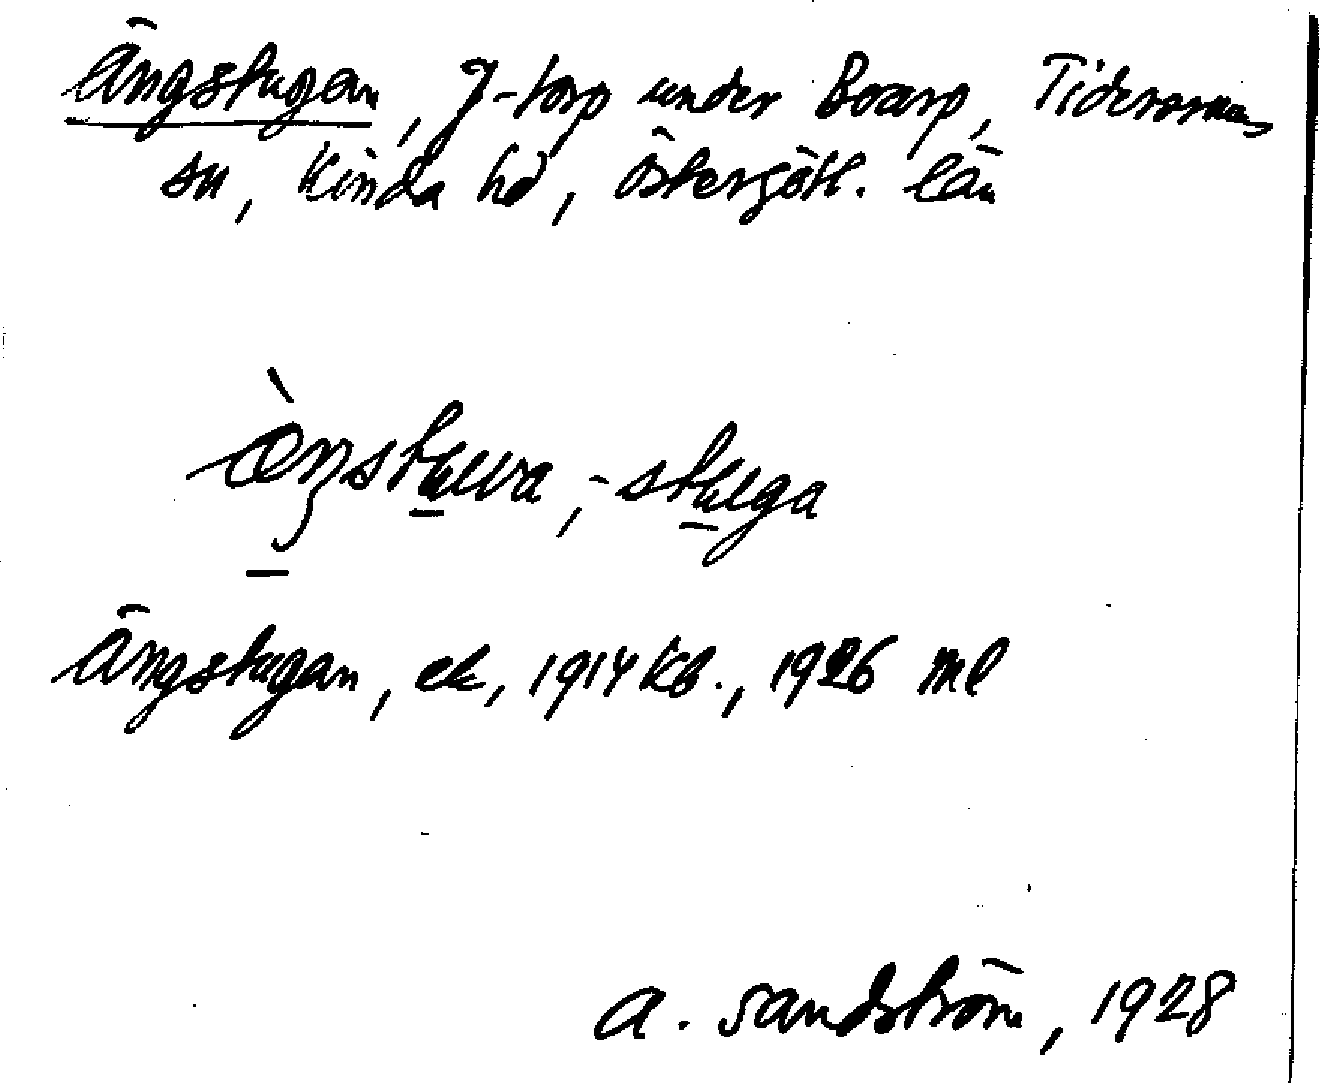 Ängstugan, J-torp under Boarp, Tidersrums
sn, Kinda hd, Östergötl. län
ö̀ŋstuwa, -stuga
Ängstugan, ek, 1914 Kb., 1926 ml
A. Sandström, 1928